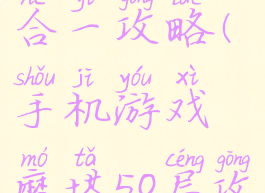 hé yī gōng lüè
合一攻略(
shǒu jī yóu xì
手机游戏
mó tǎ céng gōng
魔塔50层攻